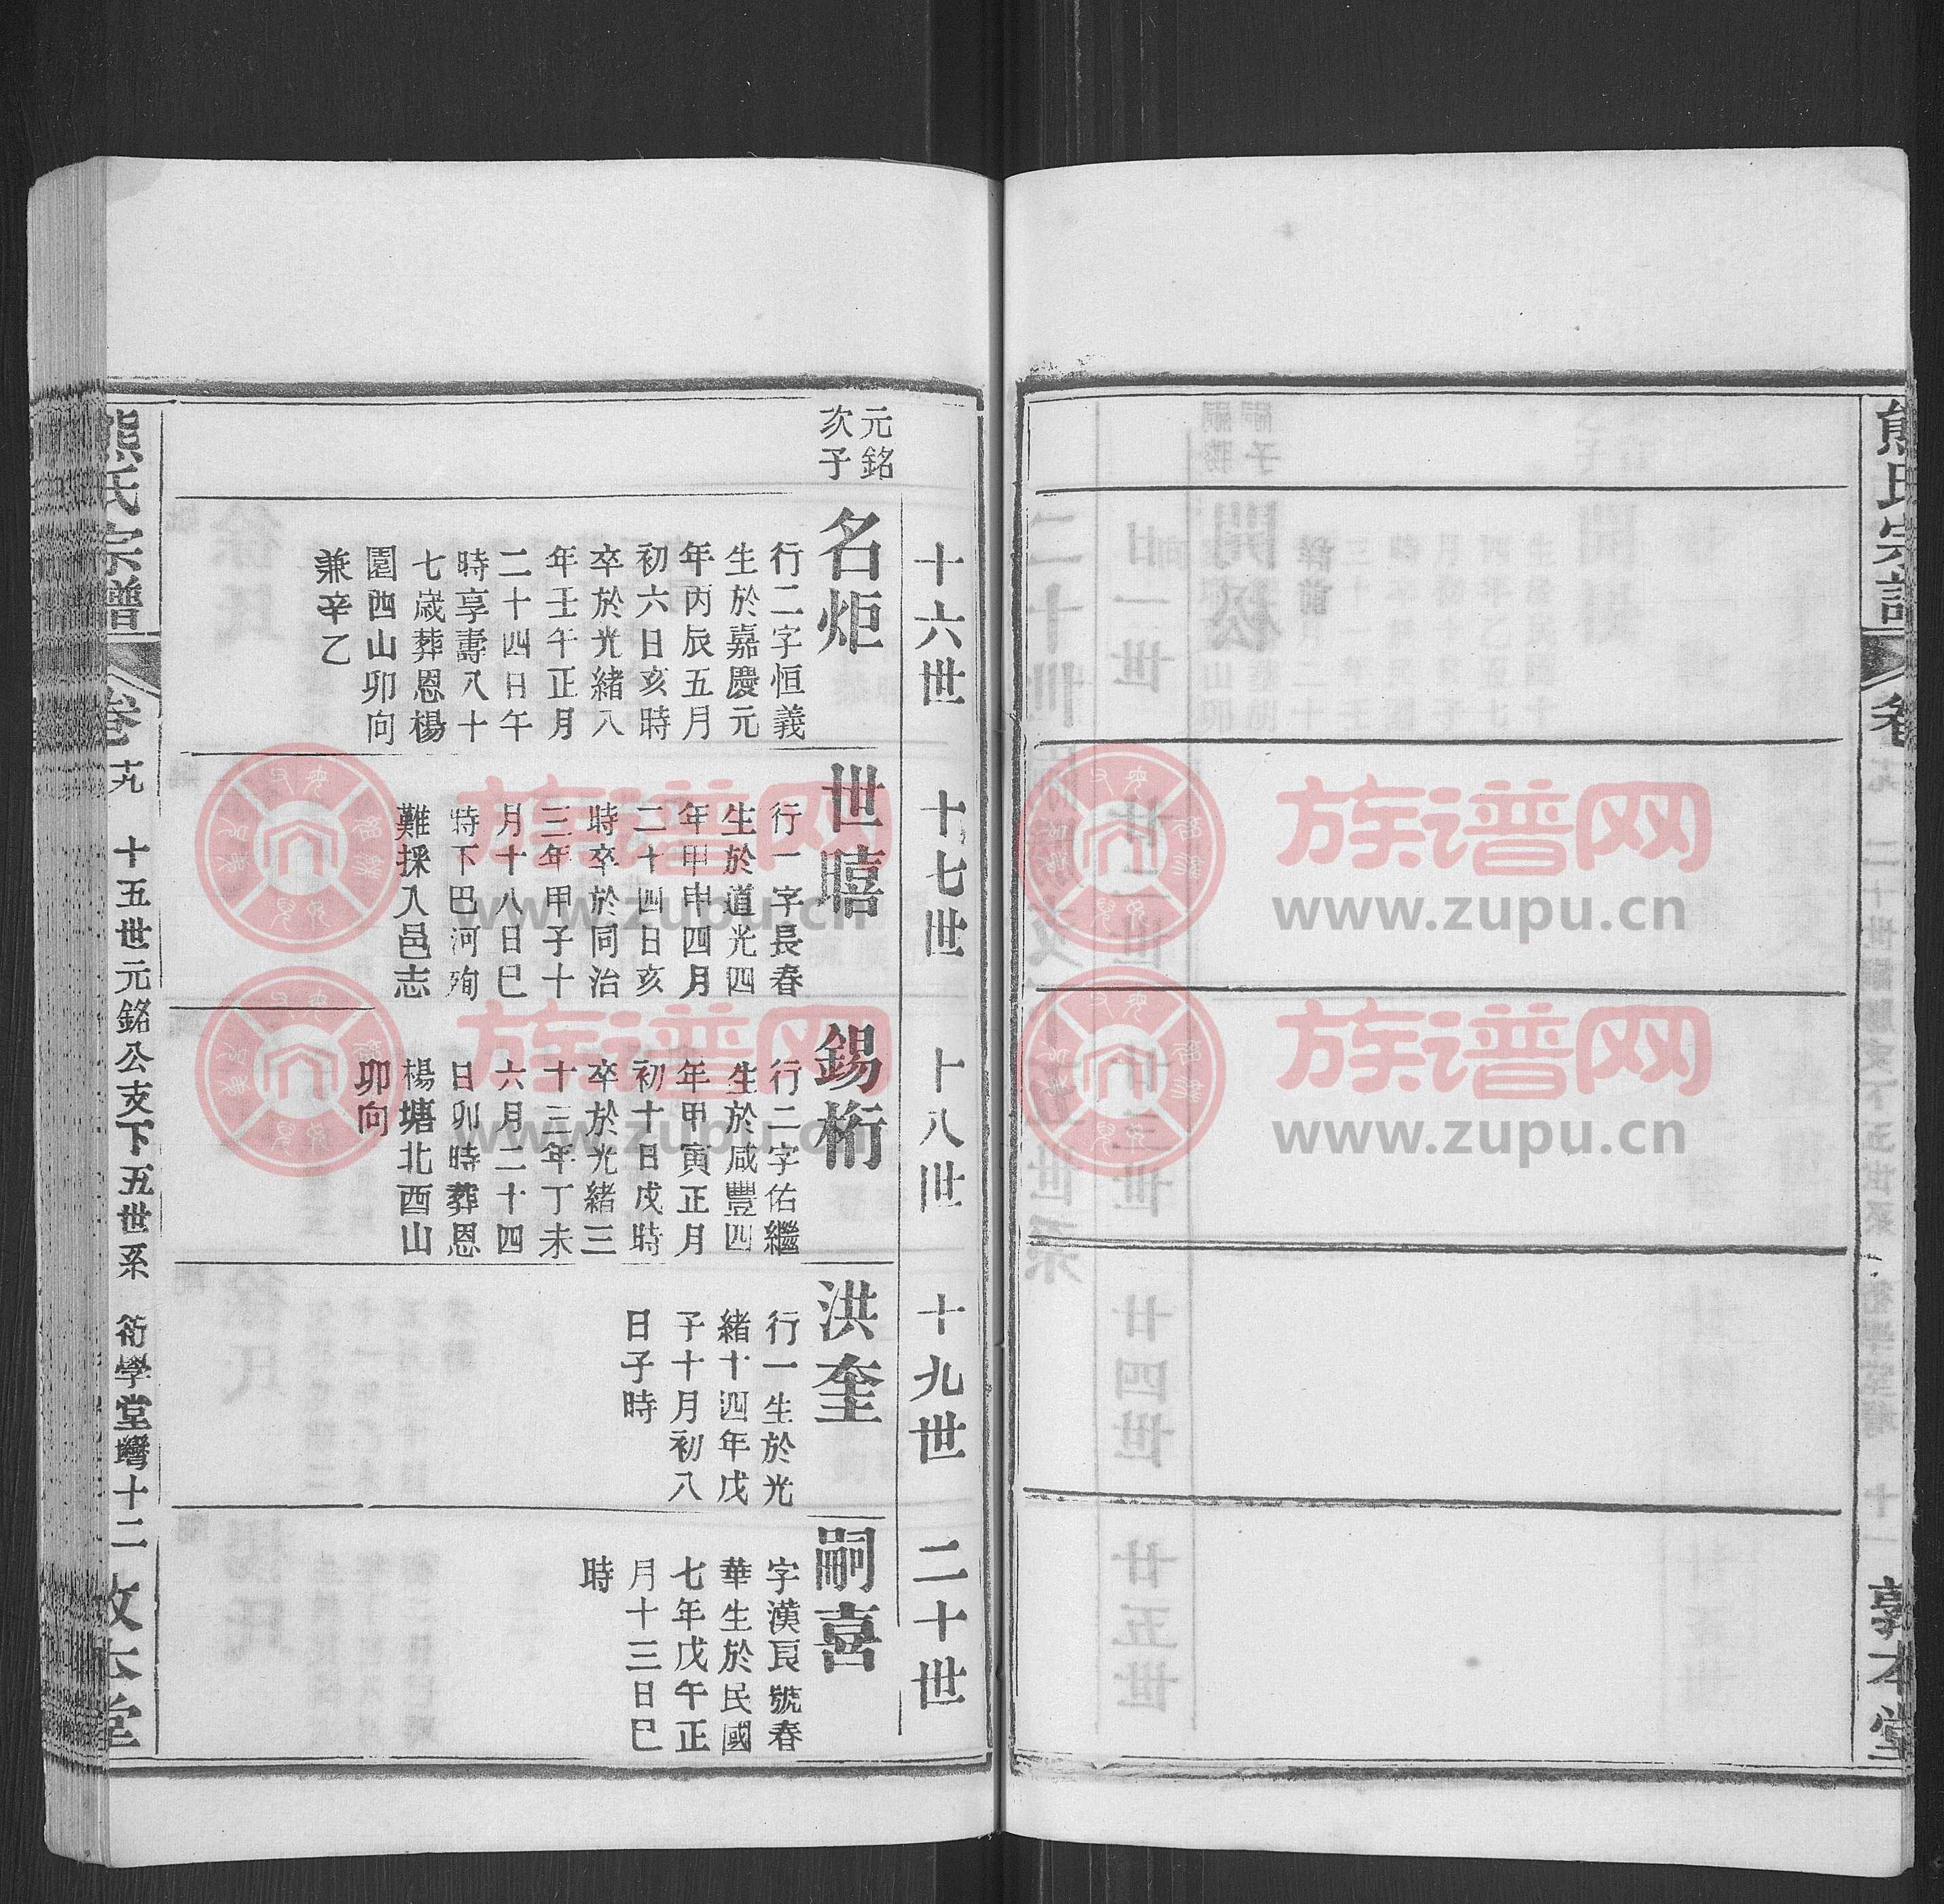 熊氏宗譜
卷
敦本堂
十六世
十七世
十八世
十九世
二十世
元銘
次子
名炬
行二字恒義
生於嘉慶元
年丙辰五月
初六日亥時
卒於光緒八
年壬午正月
二十四日午
時享壽八十
七歲葬恩楊
園西山卯向
兼辛乙
世暿
行一字長春
生於道光四
年甲申四月
二十四日亥
時卒於同治
三年甲子十
月十八日巳
時下巴河殉
難採入邑志
錫桁
行二字佑繼
生於咸豐四
年甲寅正月
初十日戌時
卒於光緒三
十三年丁未
六月二十四
日卯時葬恩
楊塘北酉山
卯向
洪奎
行一生於光
緒十四年戊
子十月初八
日子時
嗣喜
字漢良號春
華生於民國
七年戊午正
月十三日巳
時
熊氏宗譜
卷十九
十五世元銘公支下五世系
衍學堂灣十二
敦本堂
族谱网
www.zupu.cn
族谱网
www.zupu.cn
族谱网
www.zupu.cn
族谱网
www.zupu.cn